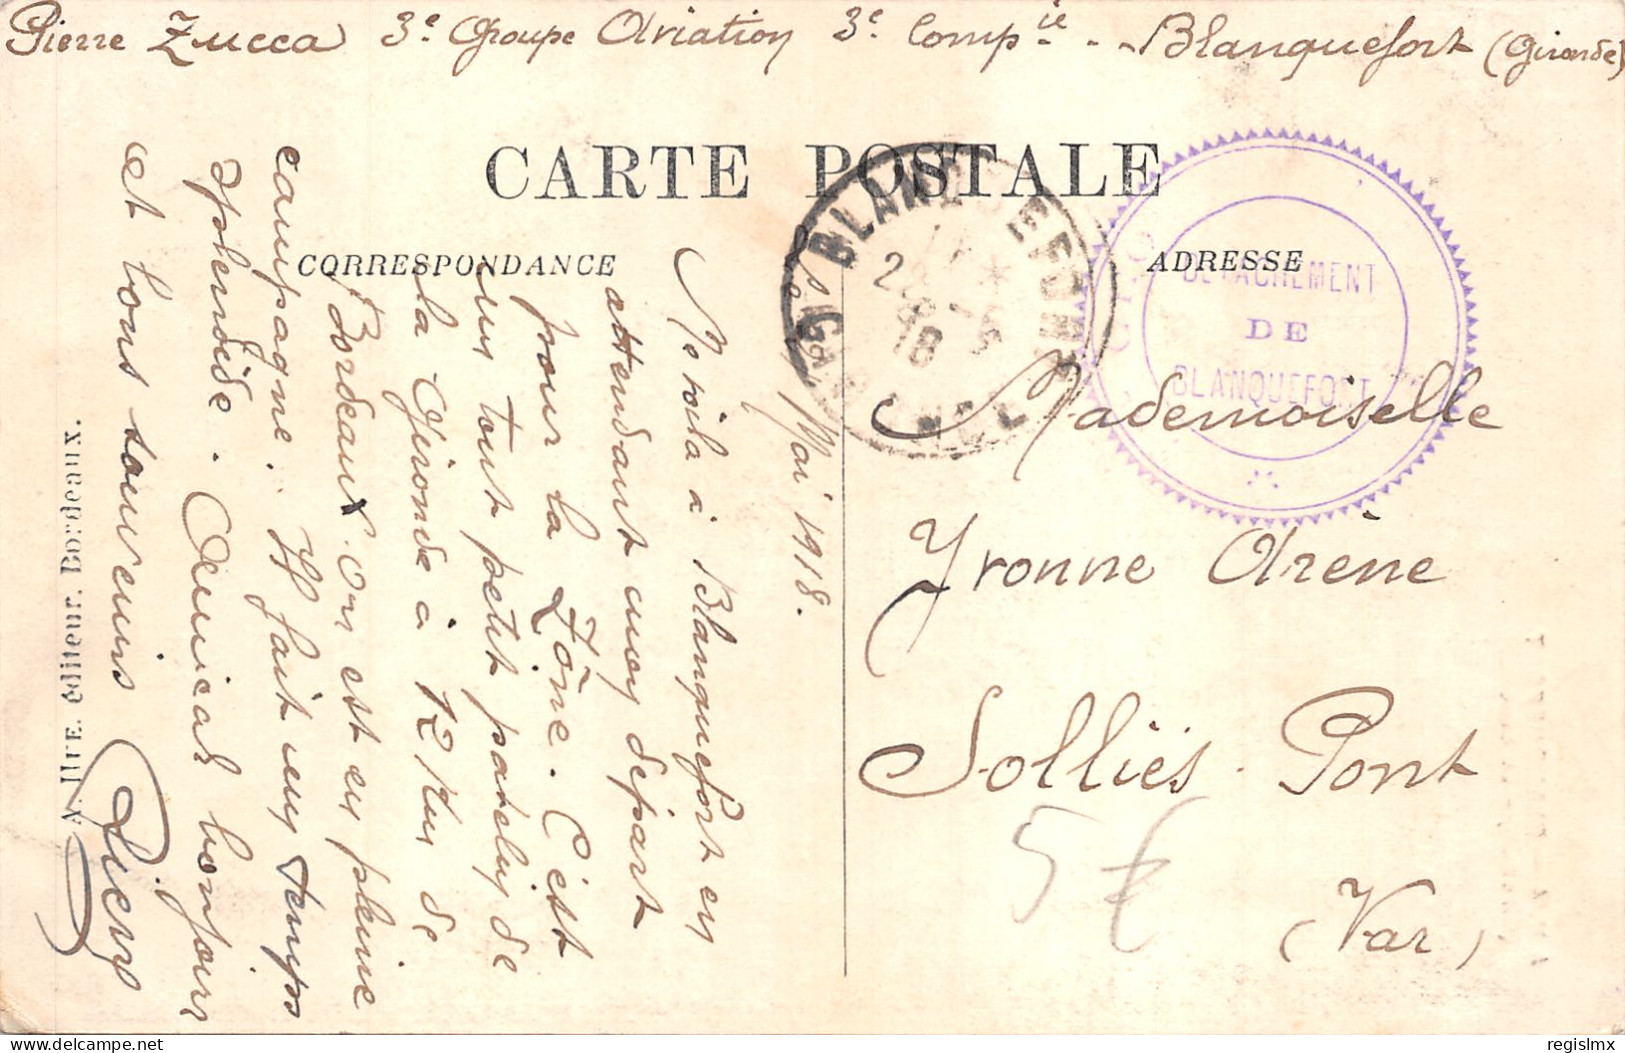 Pierre Zucca 3e Groupe Aviation 3e Compie - Blanquefort (Gironde)
CARTE POSTALE
CORRESPONDANCE
ADRESSE
BLANQUEFORT
GIRONDE
18
DÉTACHEMENT
DE
BLANQUEFORT
Mai 1918.
Me voila à Blanquefort en
attendant mon départ
pour la Zône. C'est
un tout petit patelin de
la Gironde à 12 Km de
Bordeaux. On est en pleine
campagne. Il fait un temps
splendide. Amical bonjour
et bons souvenirs
Pierre
Mademoiselle
Yvonne Arène
Solliès-Pont
(Var)
5€
éditeur. Bordeaux.
regislmx
© delcampe.net